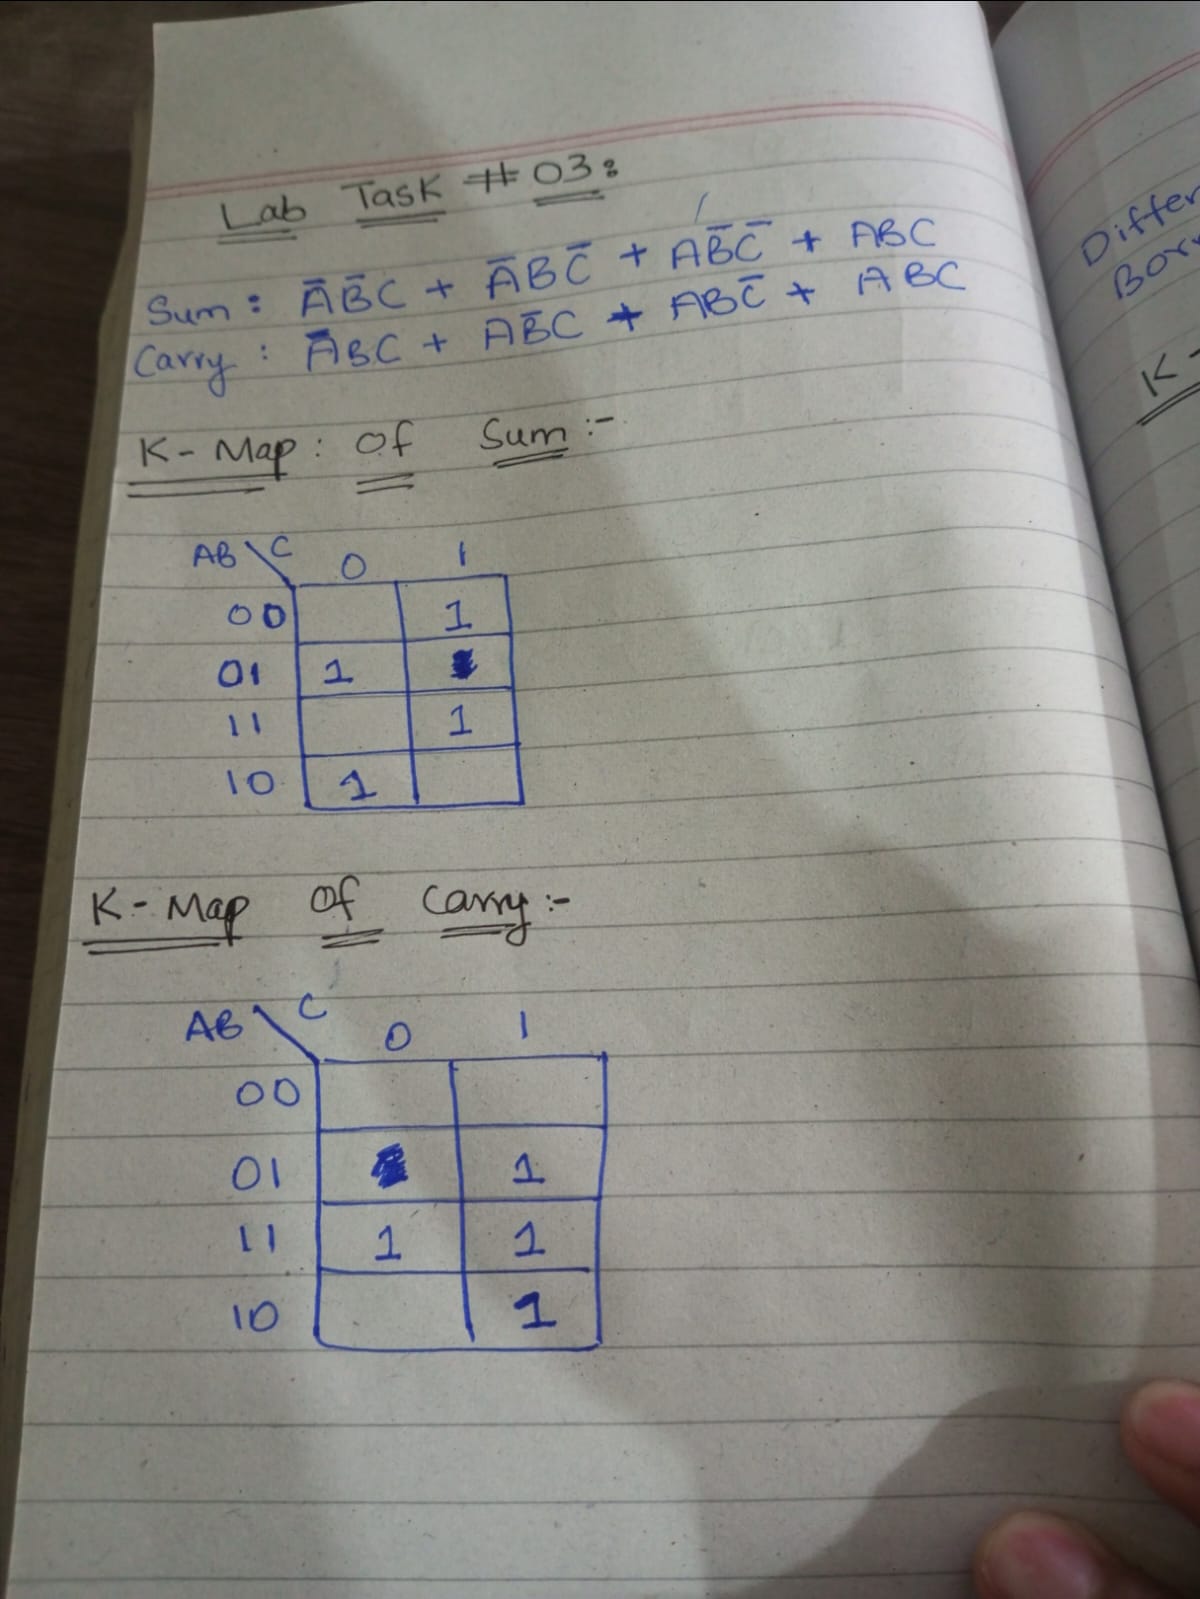 Lab Task # 03:
Sum: A̅B̅C + A̅BC̅ + AB̅C̅ + ABC
Carry: A̅BC + AB̅C + ABC̅ + ABC
K-Map: Of Sum:-
AB \ C 0 1
00 1
01 1
11 1
10 1
K-Map Of Carry:-
AB \ C 0 1
00
01 1
11 1 1
10 1
Differ
Borr
K-